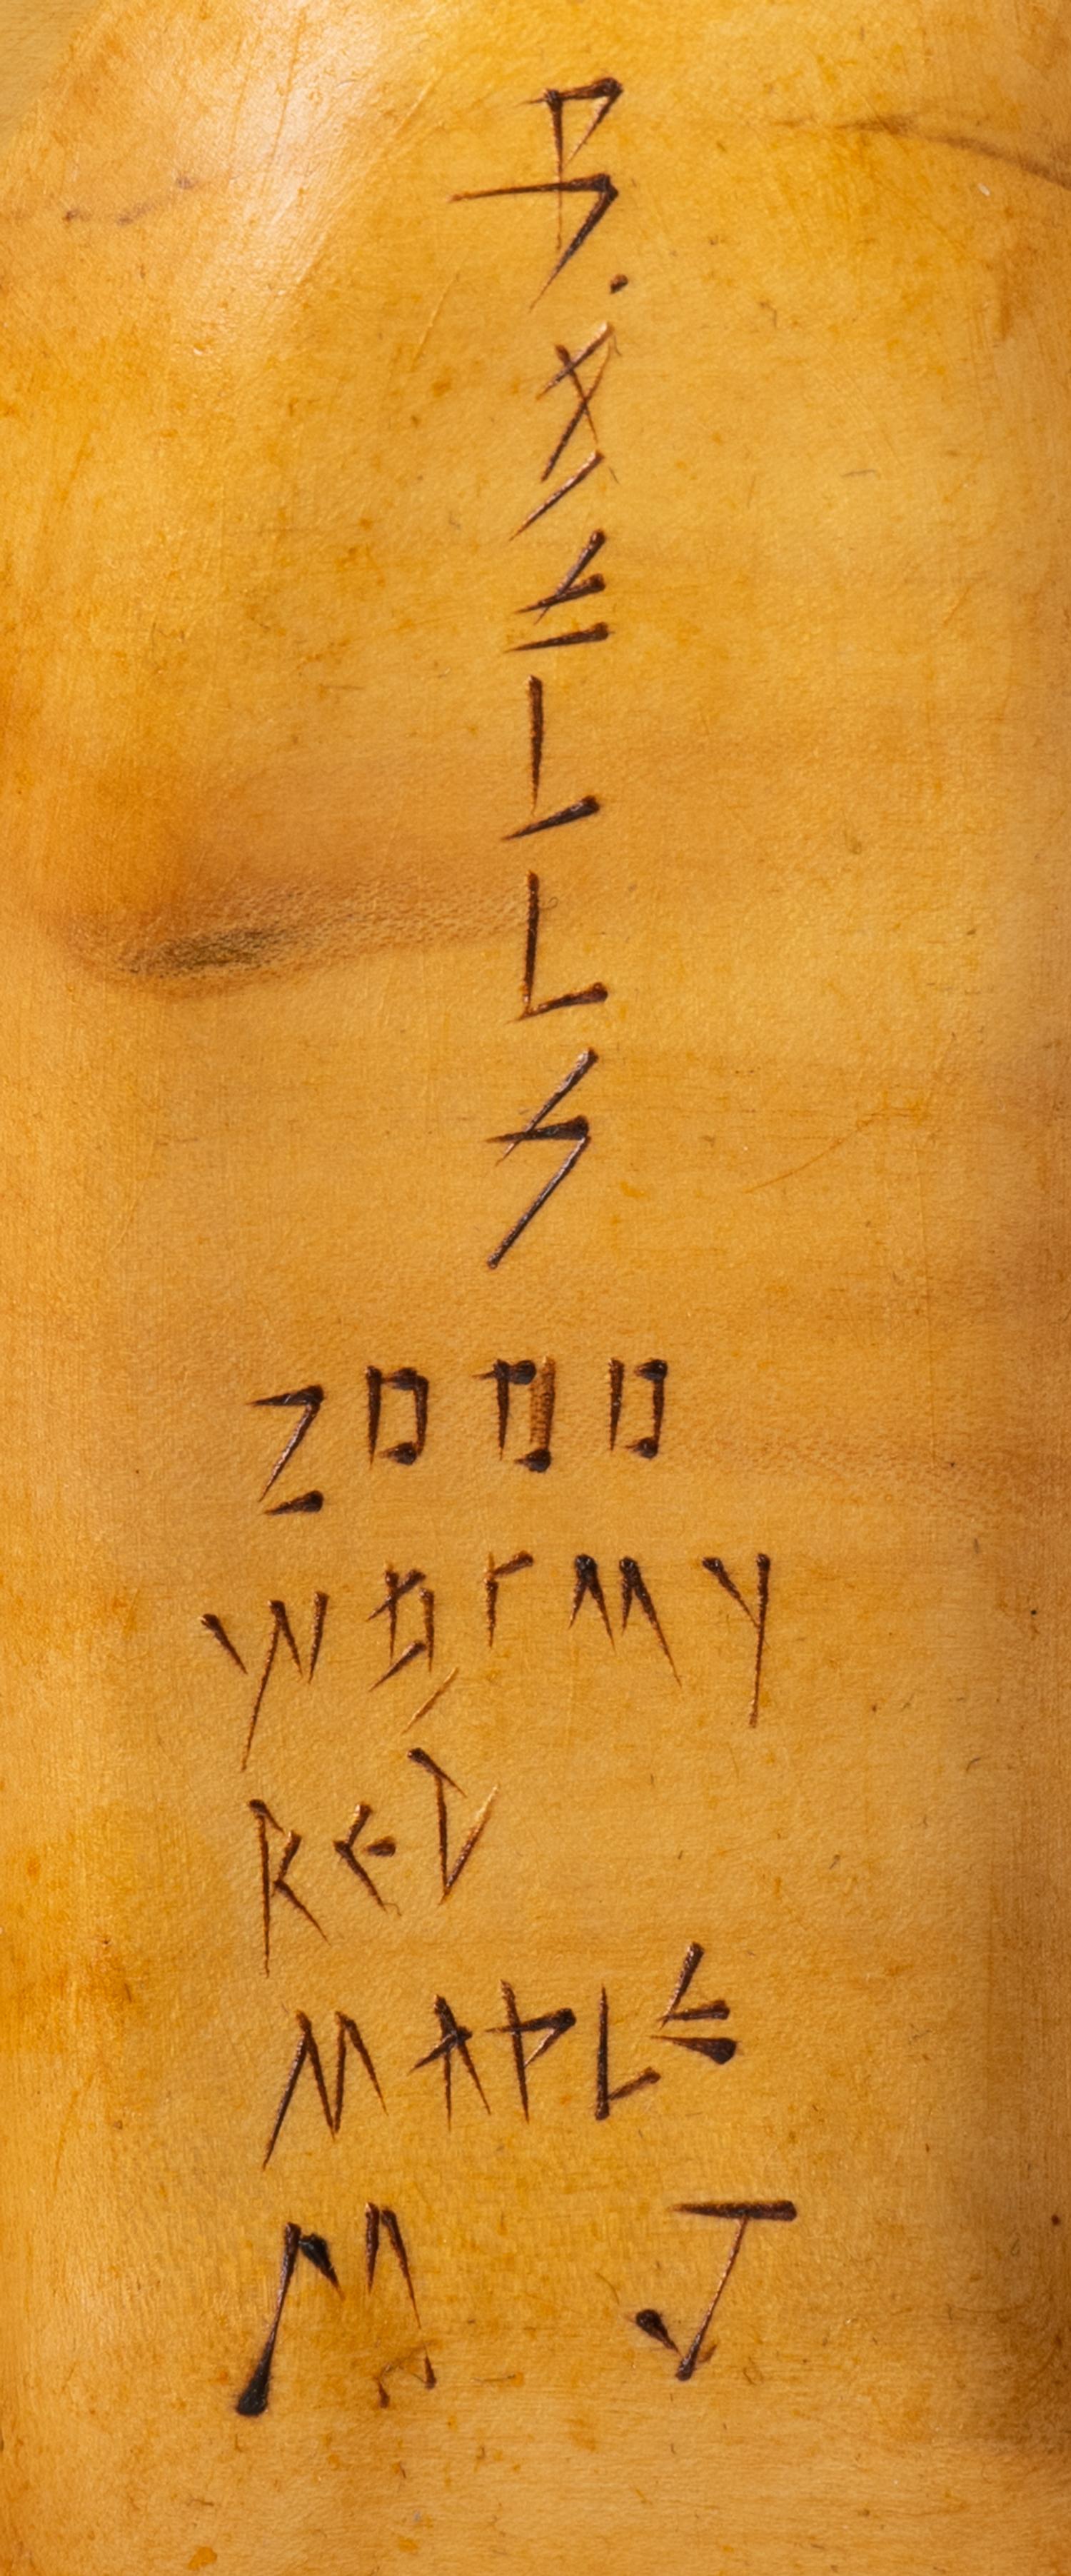 B.
2000
WORMY
RED
MAPLE
M J